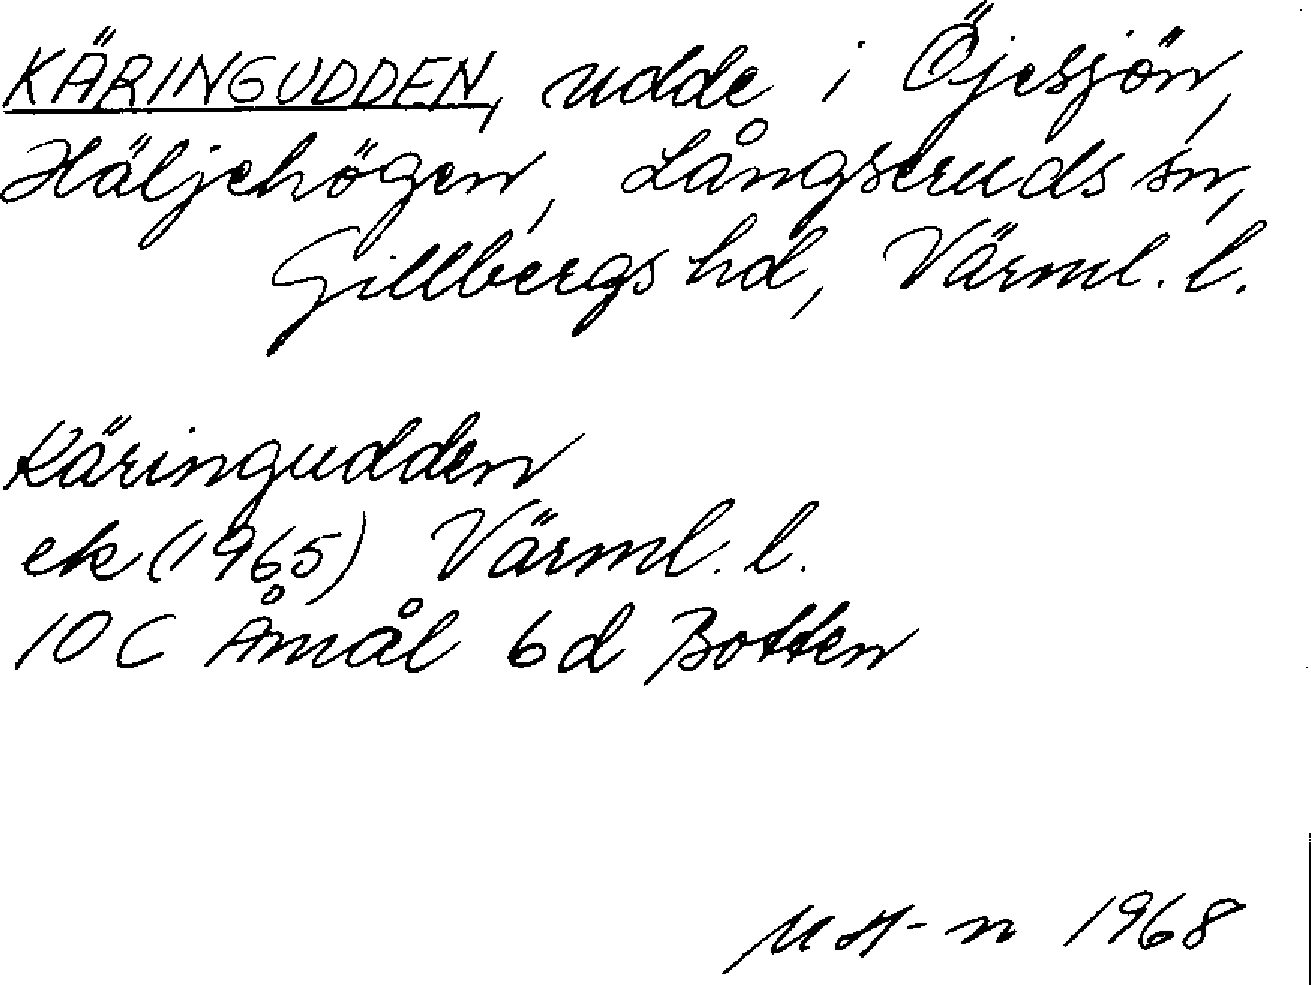 KÄRINGUDDEN, udde i Öjesjön,
Häljehögen, Långseruds sn,
Gillbergs hd, Värml. l.
Käringudden
ek (1965) Värml. l.
10 C Åmål 6d Botten
MH-n 1968